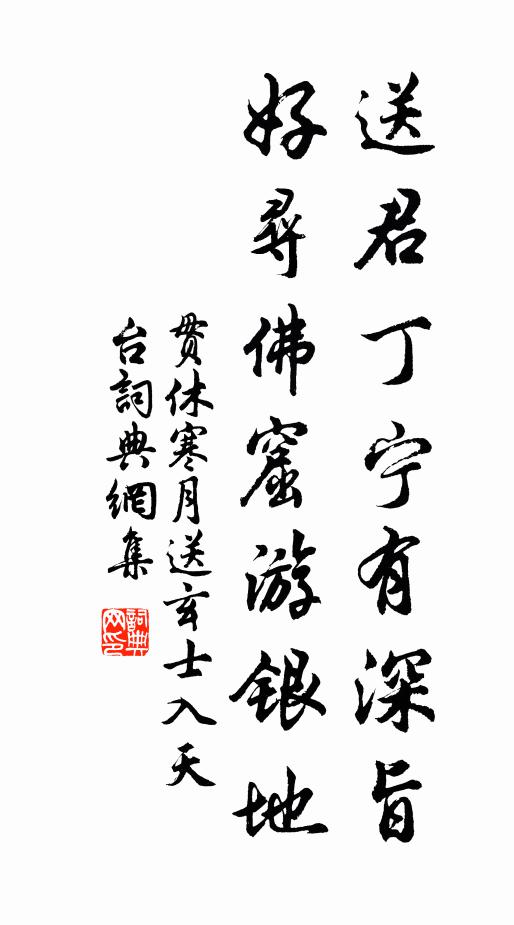 送君丁宁有深旨
好尋佛窟游銀地
贯休寒月送玄士入天
台詞典網集
詞典
网印